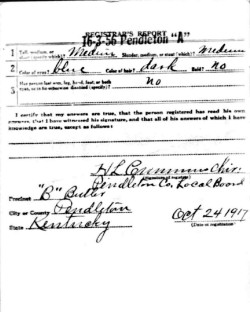 REGISTRAR'S REPORT
16-3-56 Pendleton "A"
1 Tall, medium, or short (specify which)? Medium Slender, medium, or stout (which)? Medium
2 Color of eyes? blue Color of hair? dark Bald? no
3 Has person lost arm, leg, hand, foot, or both eyes, or is he otherwise disabled (specify)? no
I certify that my answers are true, that the person registered has read his own
answers, that I have witnessed his signature, and that all of his answers of which I have
knowledge are true, except as follows:
HL Cummins Chir.
(Signature of registrar)
Pendleton Co. Local Board
Precinct "B" Butler
City or County Pendleton
State Kentucky
Oct 24 1917
(Date of registration)